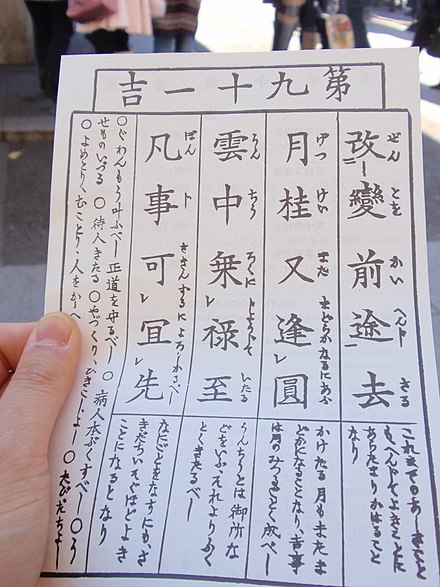 第九十一吉
改變前途去
ぜん とを かい へんト さる
これまでのあしきこと
もへんじてよきことに
あらたまりかはること
なり
月桂又逢圓
げつ けい また まどらかなるにあふ
かけたる月もまたま
どかになることなり、吉事
は月のみつるごとく成べし
雲中乗禄至
うん ちう ろくにじようじて いたる
うんちうとは御所な
どをいふ、それよりふく
とくきたるべし
凡事可宜先
ぼん ト さきんずるによろしかるべし
なにごとをなすにも、さ
きだちいそげばよき
ことになるとなり
○ぐわんもう叶ふべし 正道を守るべし ○病人本ぷくすべし ○う
せものいづる ○待人きたる ○やづくり、ひきこしよし ○たびだちよし
○よめとり、むことり、人をかゝへ